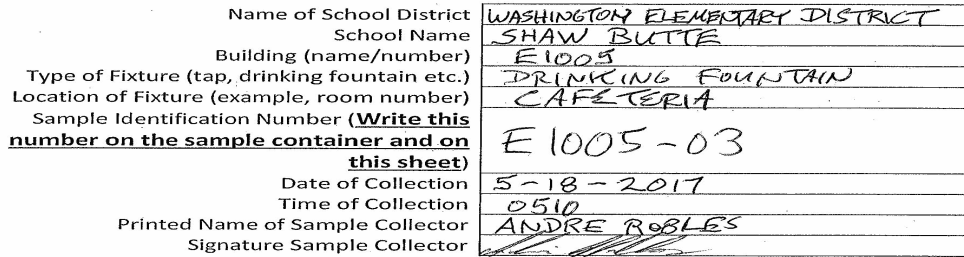 Name of School District WASHINGTON ELEMENTARY DISTRICT
School Name SHAW BUTTE
Building (name/number) E1005
Type of Fixture (tap, drinking fountain etc.) DRINKING FOUNTAIN
Location of Fixture (example, room number) CAFETERIA
Sample Identification Number (Write this
number on the sample container and on E1005-03
this sheet)
Date of Collection 5-18-2017
Time of Collection 0510
Printed Name of Sample Collector ANDRE ROBLES
Signature Sample Collector